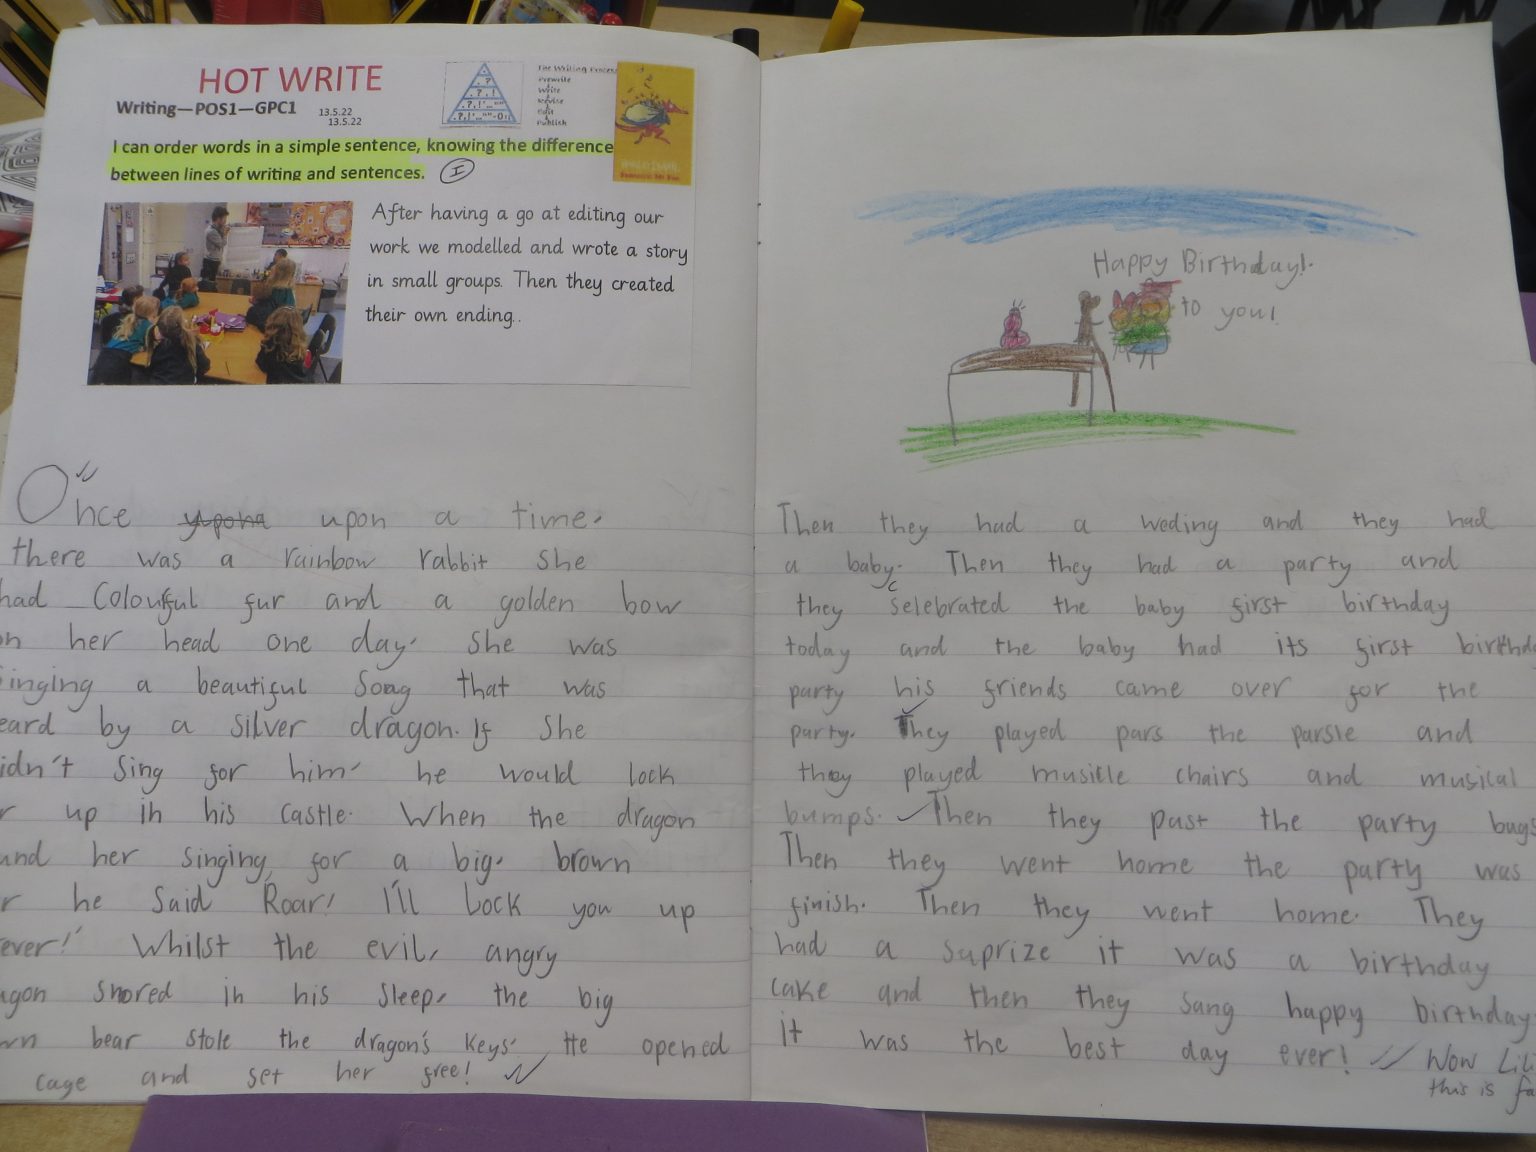 HOT WRITE
Writing—POS1—GPC1
13.5.22
13.5.22
The Writing Process
Prewrite
Write
Revise
Edit
Publish
I can order words in a simple sentence, knowing the difference
between lines of writing and sentences. I
After having a go at editing our
work we modelled and wrote a story
in small groups. Then they created
their own ending..
Once upon a time.
there was a rainbow rabbit She
had Colourful fur and a golden bow
on her head one day. She was
singing a beautiful Song that was
eard by a silver dragon. If She
idn't Sing for him he would lock
r up in his castle. When the dragon
und her singing, for a big. brown
r he Said Roar! I'll Lock you up
ever!' Whilst the evil, angry
agon snored in his Sleep, the big
wn bear stole the dragon's keys. He opened
cage and set her free!
Happy Birthday!
to you!
Then they had a weding and they had
a baby. Then they had a party and
c
they selebrated the baby first birthday
today and the baby had its first birthda
party his friends came over for the
party. They played pars the parsle and
they played musicle chairs and musical
bumps. Then they past the party bags
Then they went home the party was
finish. Then they went home. They
had a saprize it was a birthday
cake and then they sang happy birthday
it was the best day ever! Wow Lil
this is fa